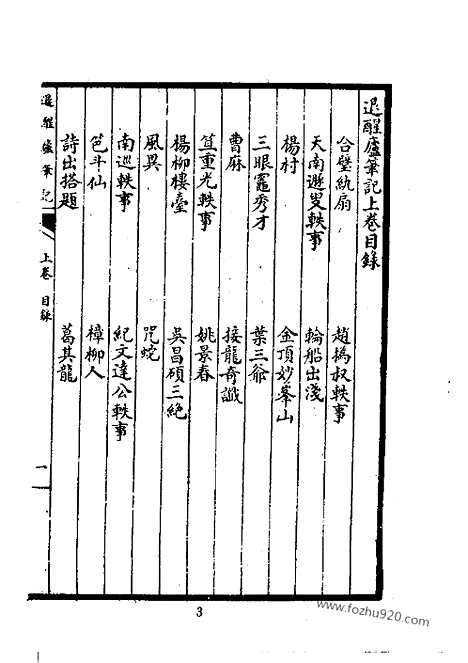 退醒廬筆記上卷目錄
合璧紈扇　趙撝叔軼事
天南遯叟軼事　輪船出淺
楊村　金頂妙峯山
三眼竈秀才　葉三爺
曹麻　接龍奇讖
笪重光軼事　姚景春
楊柳樓臺　吳昌碩三絶
風異　咒蛇
南巡軼事　紀文達公軼事
笆斗仙　樟柳人
詩出搭題　葛其龍
退醒廬筆記　上卷　目錄　一
3
www.fozhu920.com